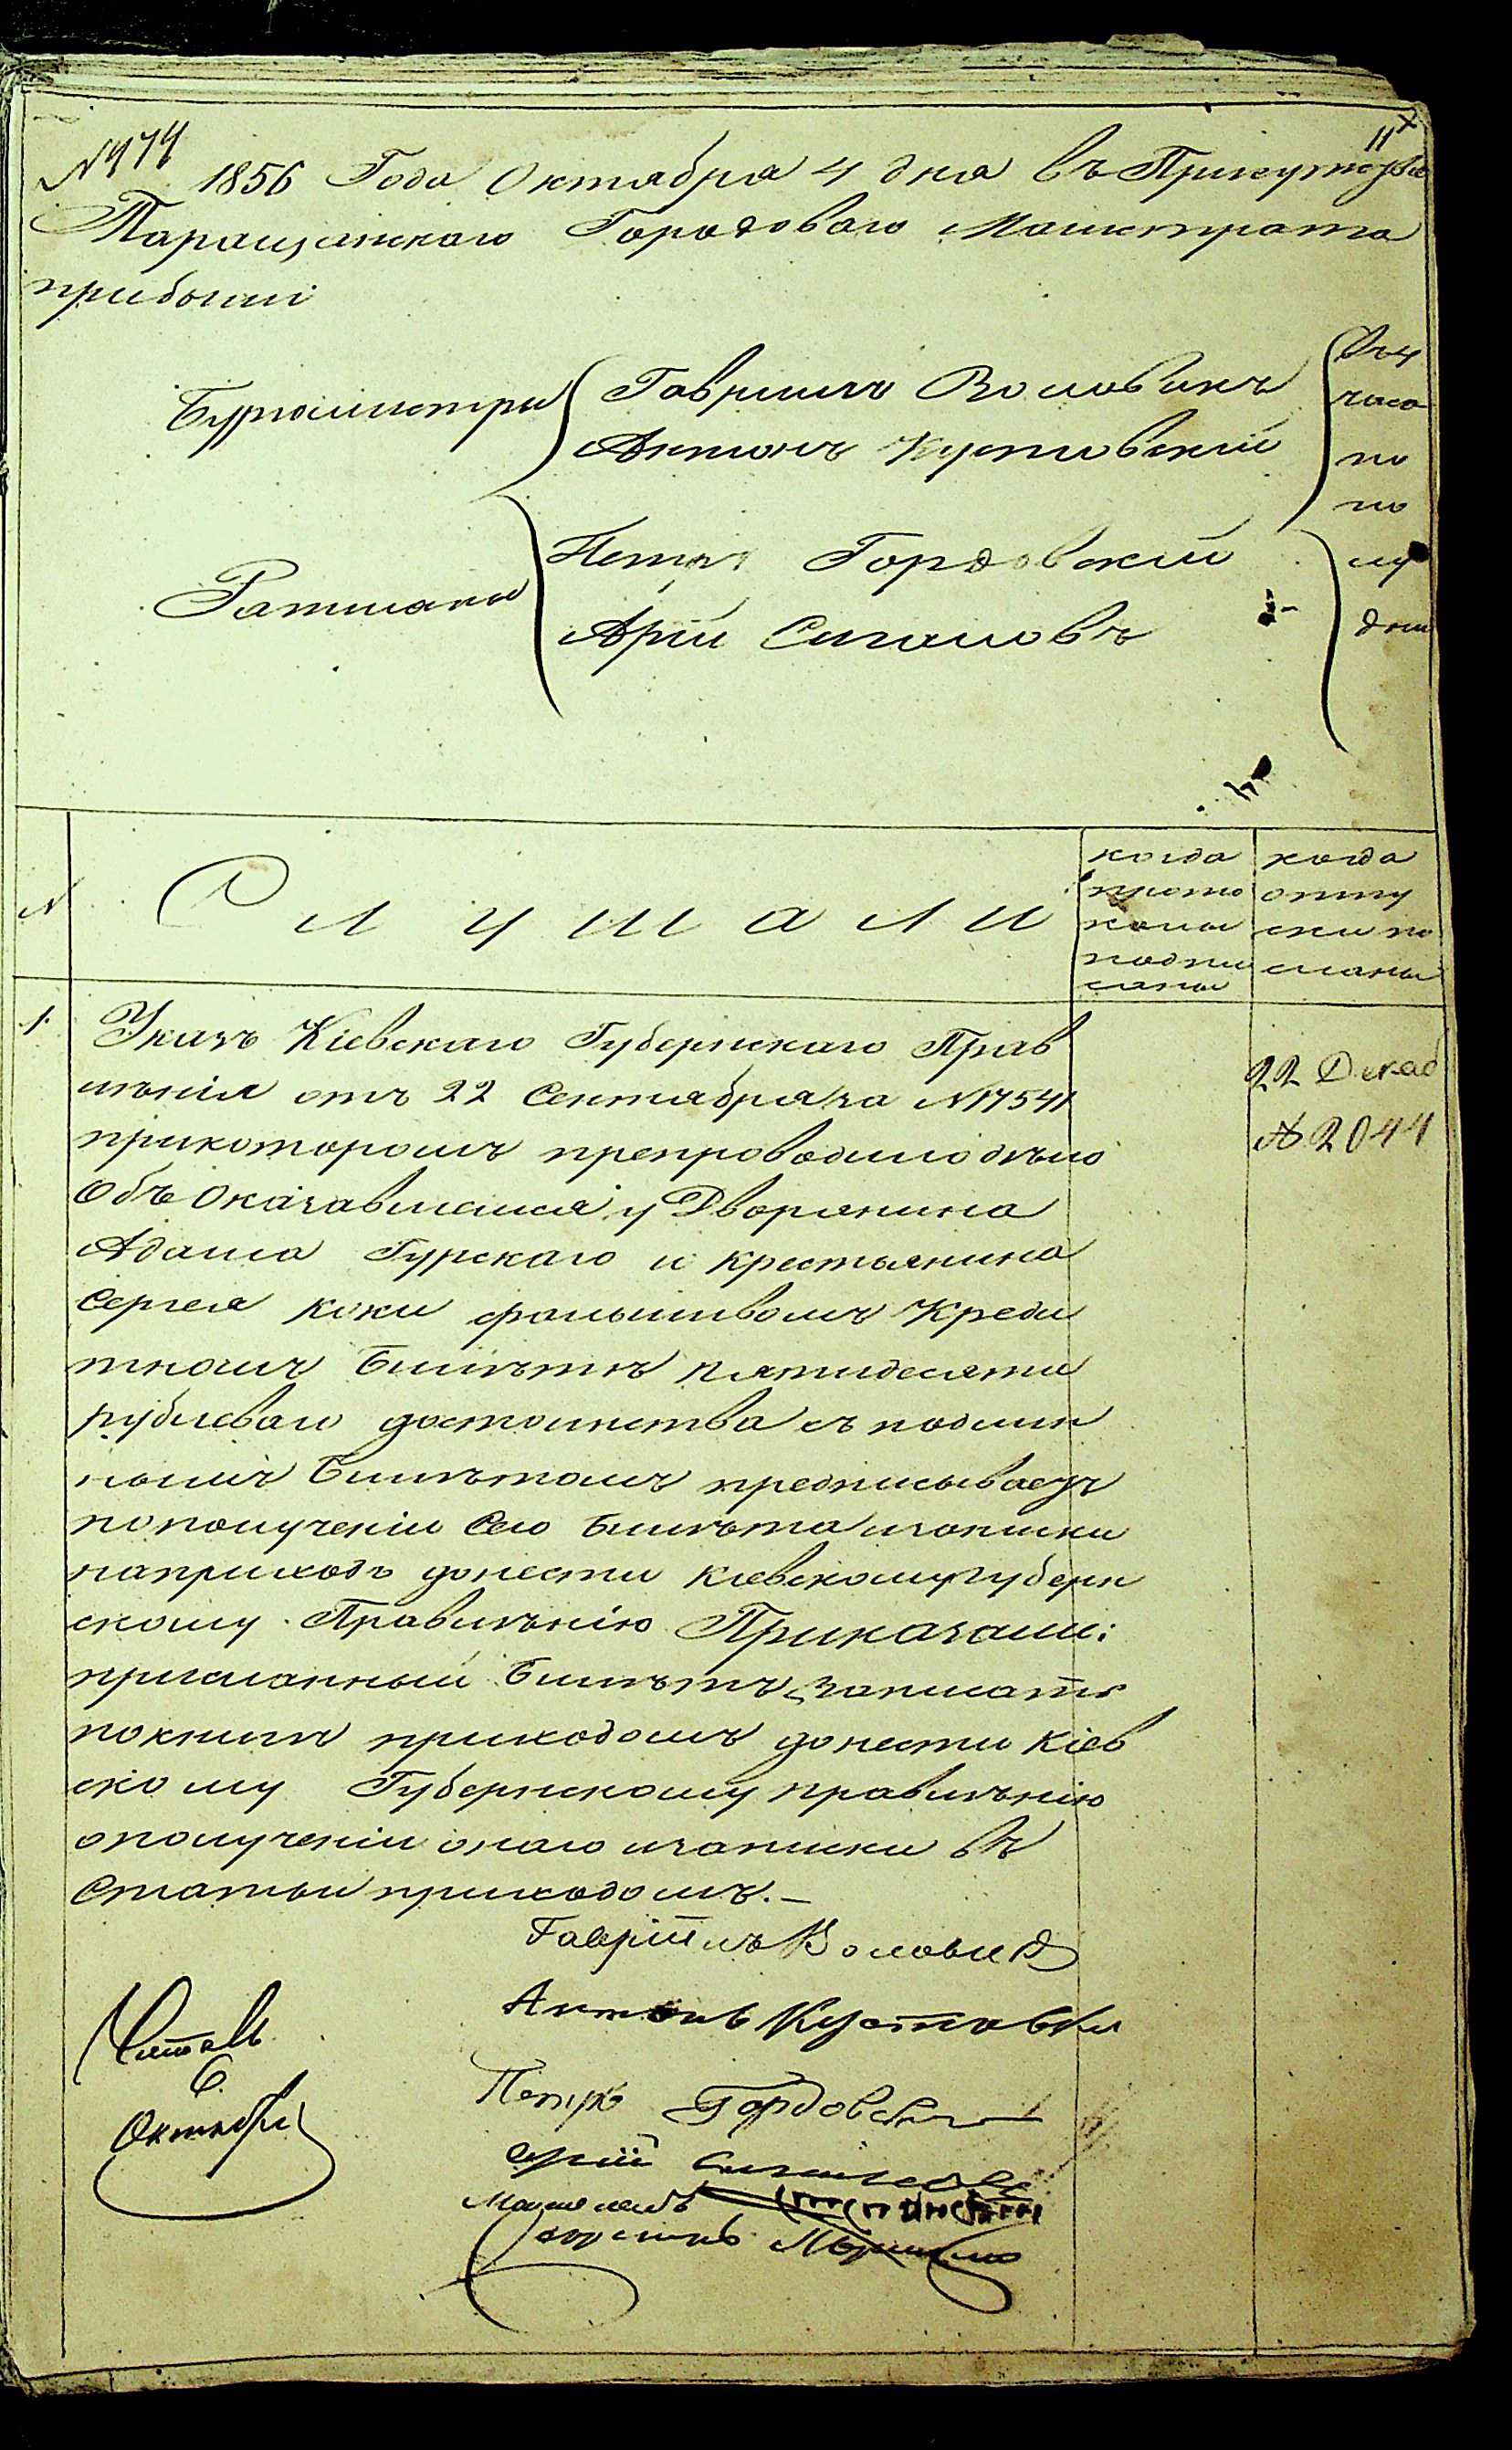 N 474
11
1856 Года Октября 4 дня въ Присутствіе
Таращанскаго Городоваго Магистрата
прибыли
Бургомистры
Гавріилъ Воловикъ
Антонъ Кустовскій
въ 4
часа
по
по
лу
дни
Ратманы
Петръ Гордовскій
Арій Сигаловъ
N
Слушали
когда
прото
колы
подпи
саны
когда
отпу
ски по
сланы
1.
Указъ Кіевскаго Губернскаго Прав
ленія отъ 22 Сентября за N 17541
прикоторомъ препроводило дѣло
Объ Оказавшемся у Дворянина
Адама Гурскаго и крестьянина
Сергея коки фальшивомъ Креди
тномъ билѣтѣ пятидесяти
рублеваго достоинства съ подлин
нымъ билѣтомъ предписываетъ
пополученіи Сего билѣта изаписки
наприходъ донести кіевскомугуберн
скому Правилѣнію Приказали:
присланный билѣтъ записать
покнигѣ приходомъ донести Кіев
скому Губернскому правилѣнію
ополученіи онаго изаписки въ
Статьи приходомъ.-
22 Декаб
N 2044
Гавріилъ Воловик
Антонъ Кустовски
Петръ Гордовскій
Арій Сигаловъ
Читалъ
6
Октября